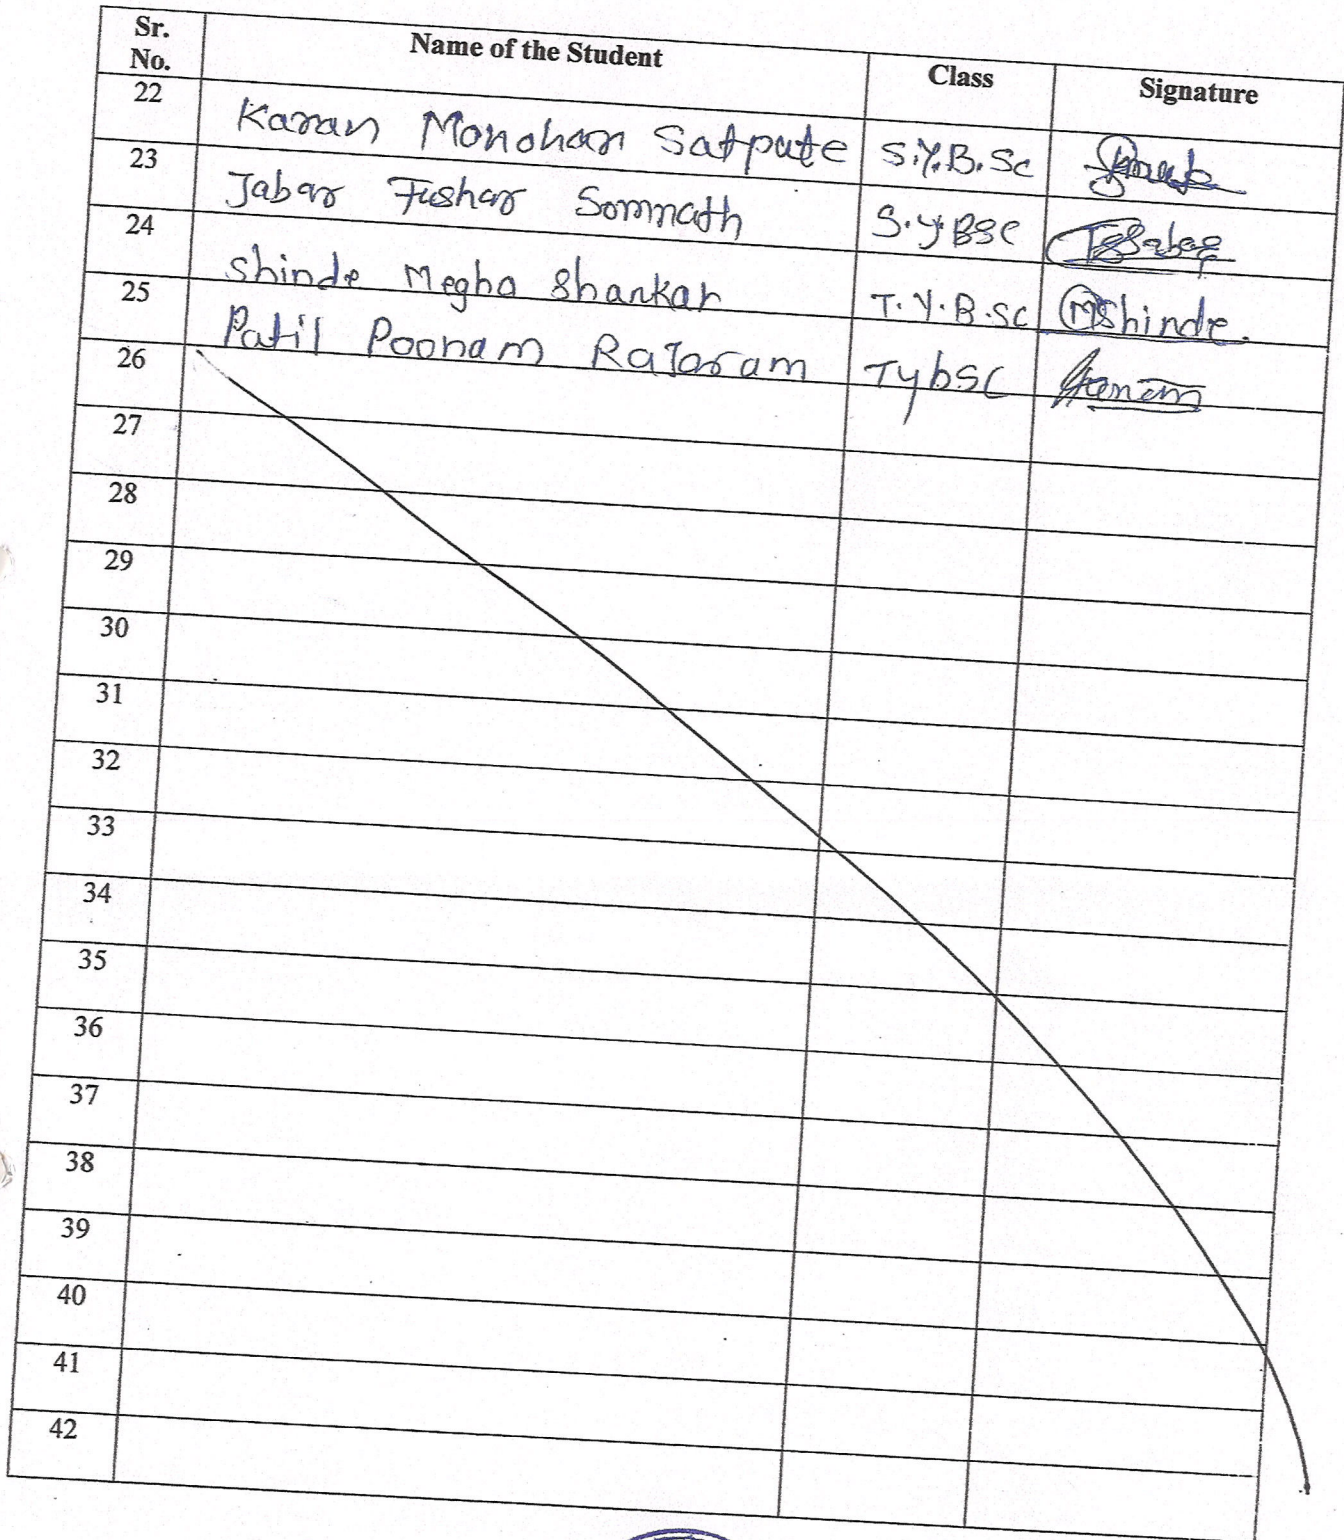 Sr. No. Name of the Student Class Signature
22 Karan Monohar Satpute S.Y.B.Sc
23 Jabar Tushar Somnath S.y BSC
24 Shinde Megha Shankar T.Y.B.SC MShinde.
25 Patil Poonam RaJaram TybSC
26
27
28
29
30
31
32
33
34
35
36
37
38
39
40
41
42